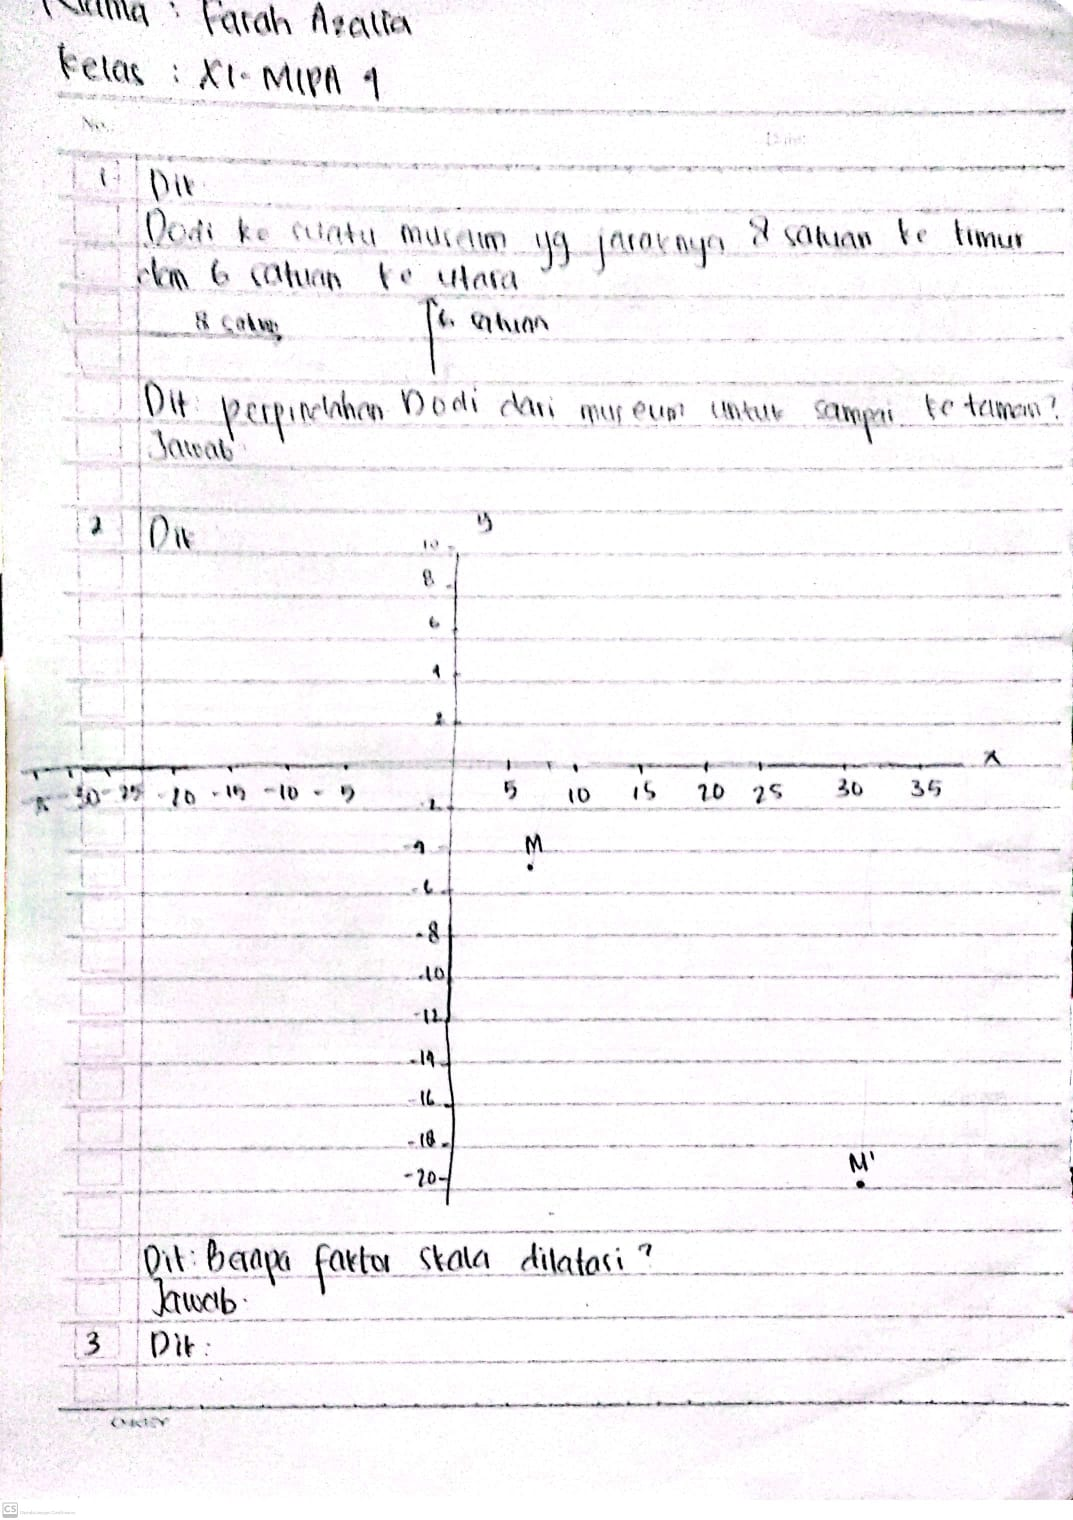 Nama : Farah Azalia
Kelas : XI - MIPA 1
No.
Date
1. Dik
Dodi ke suatu museum yg jaraknya 8 satuan ke timur
dan 6 satuan ke utara
8 satuan 6 satuan
Dit: perpindahan Dodi dari museum untuk sampai ke taman?
Jawab
2 Dik
y
10
8
6
4
2
x
-30 -25 -20 -15 -10 -5 5 10 15 20 25 30 35
-2
-4 M
-6
-8
-10
-12
-14
-16
-18
M'
-20
Dit: Berapa faktor skala dilatasi?
Jawab.
3 Dik :
CS